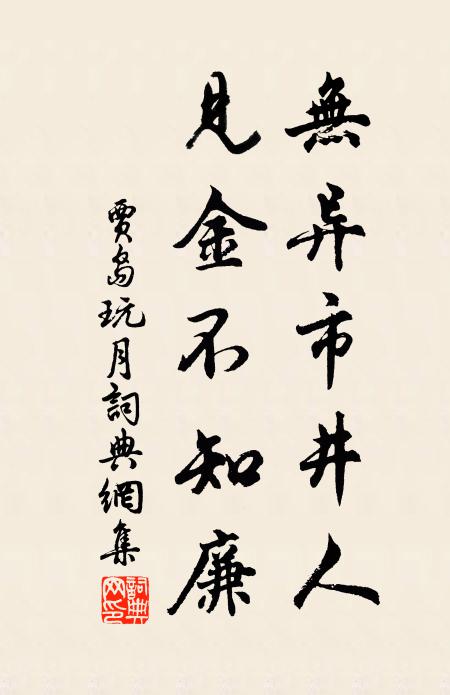 無异市井人
見金不知廉
賈島玩月詞典網集
詞典网印